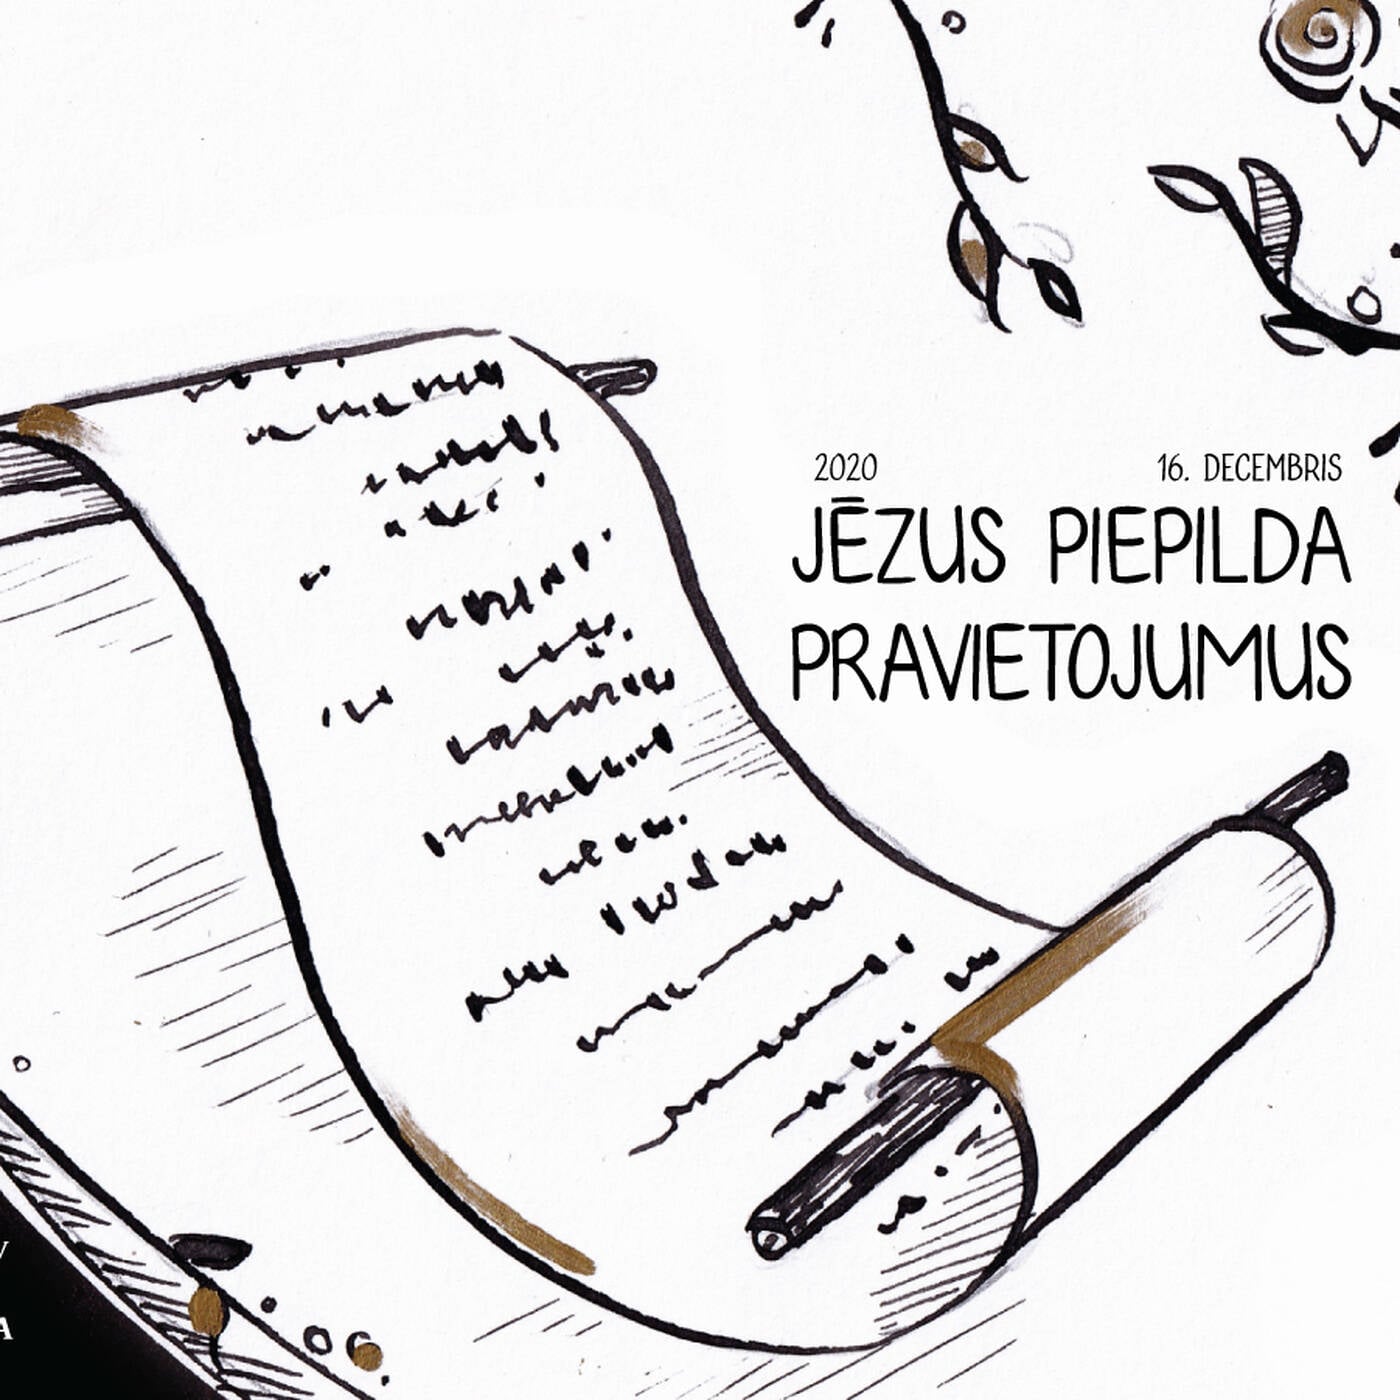 2020 16. DECEMBRIS
JĒZUS PIEPILDA
PRAVIETOJUMUS